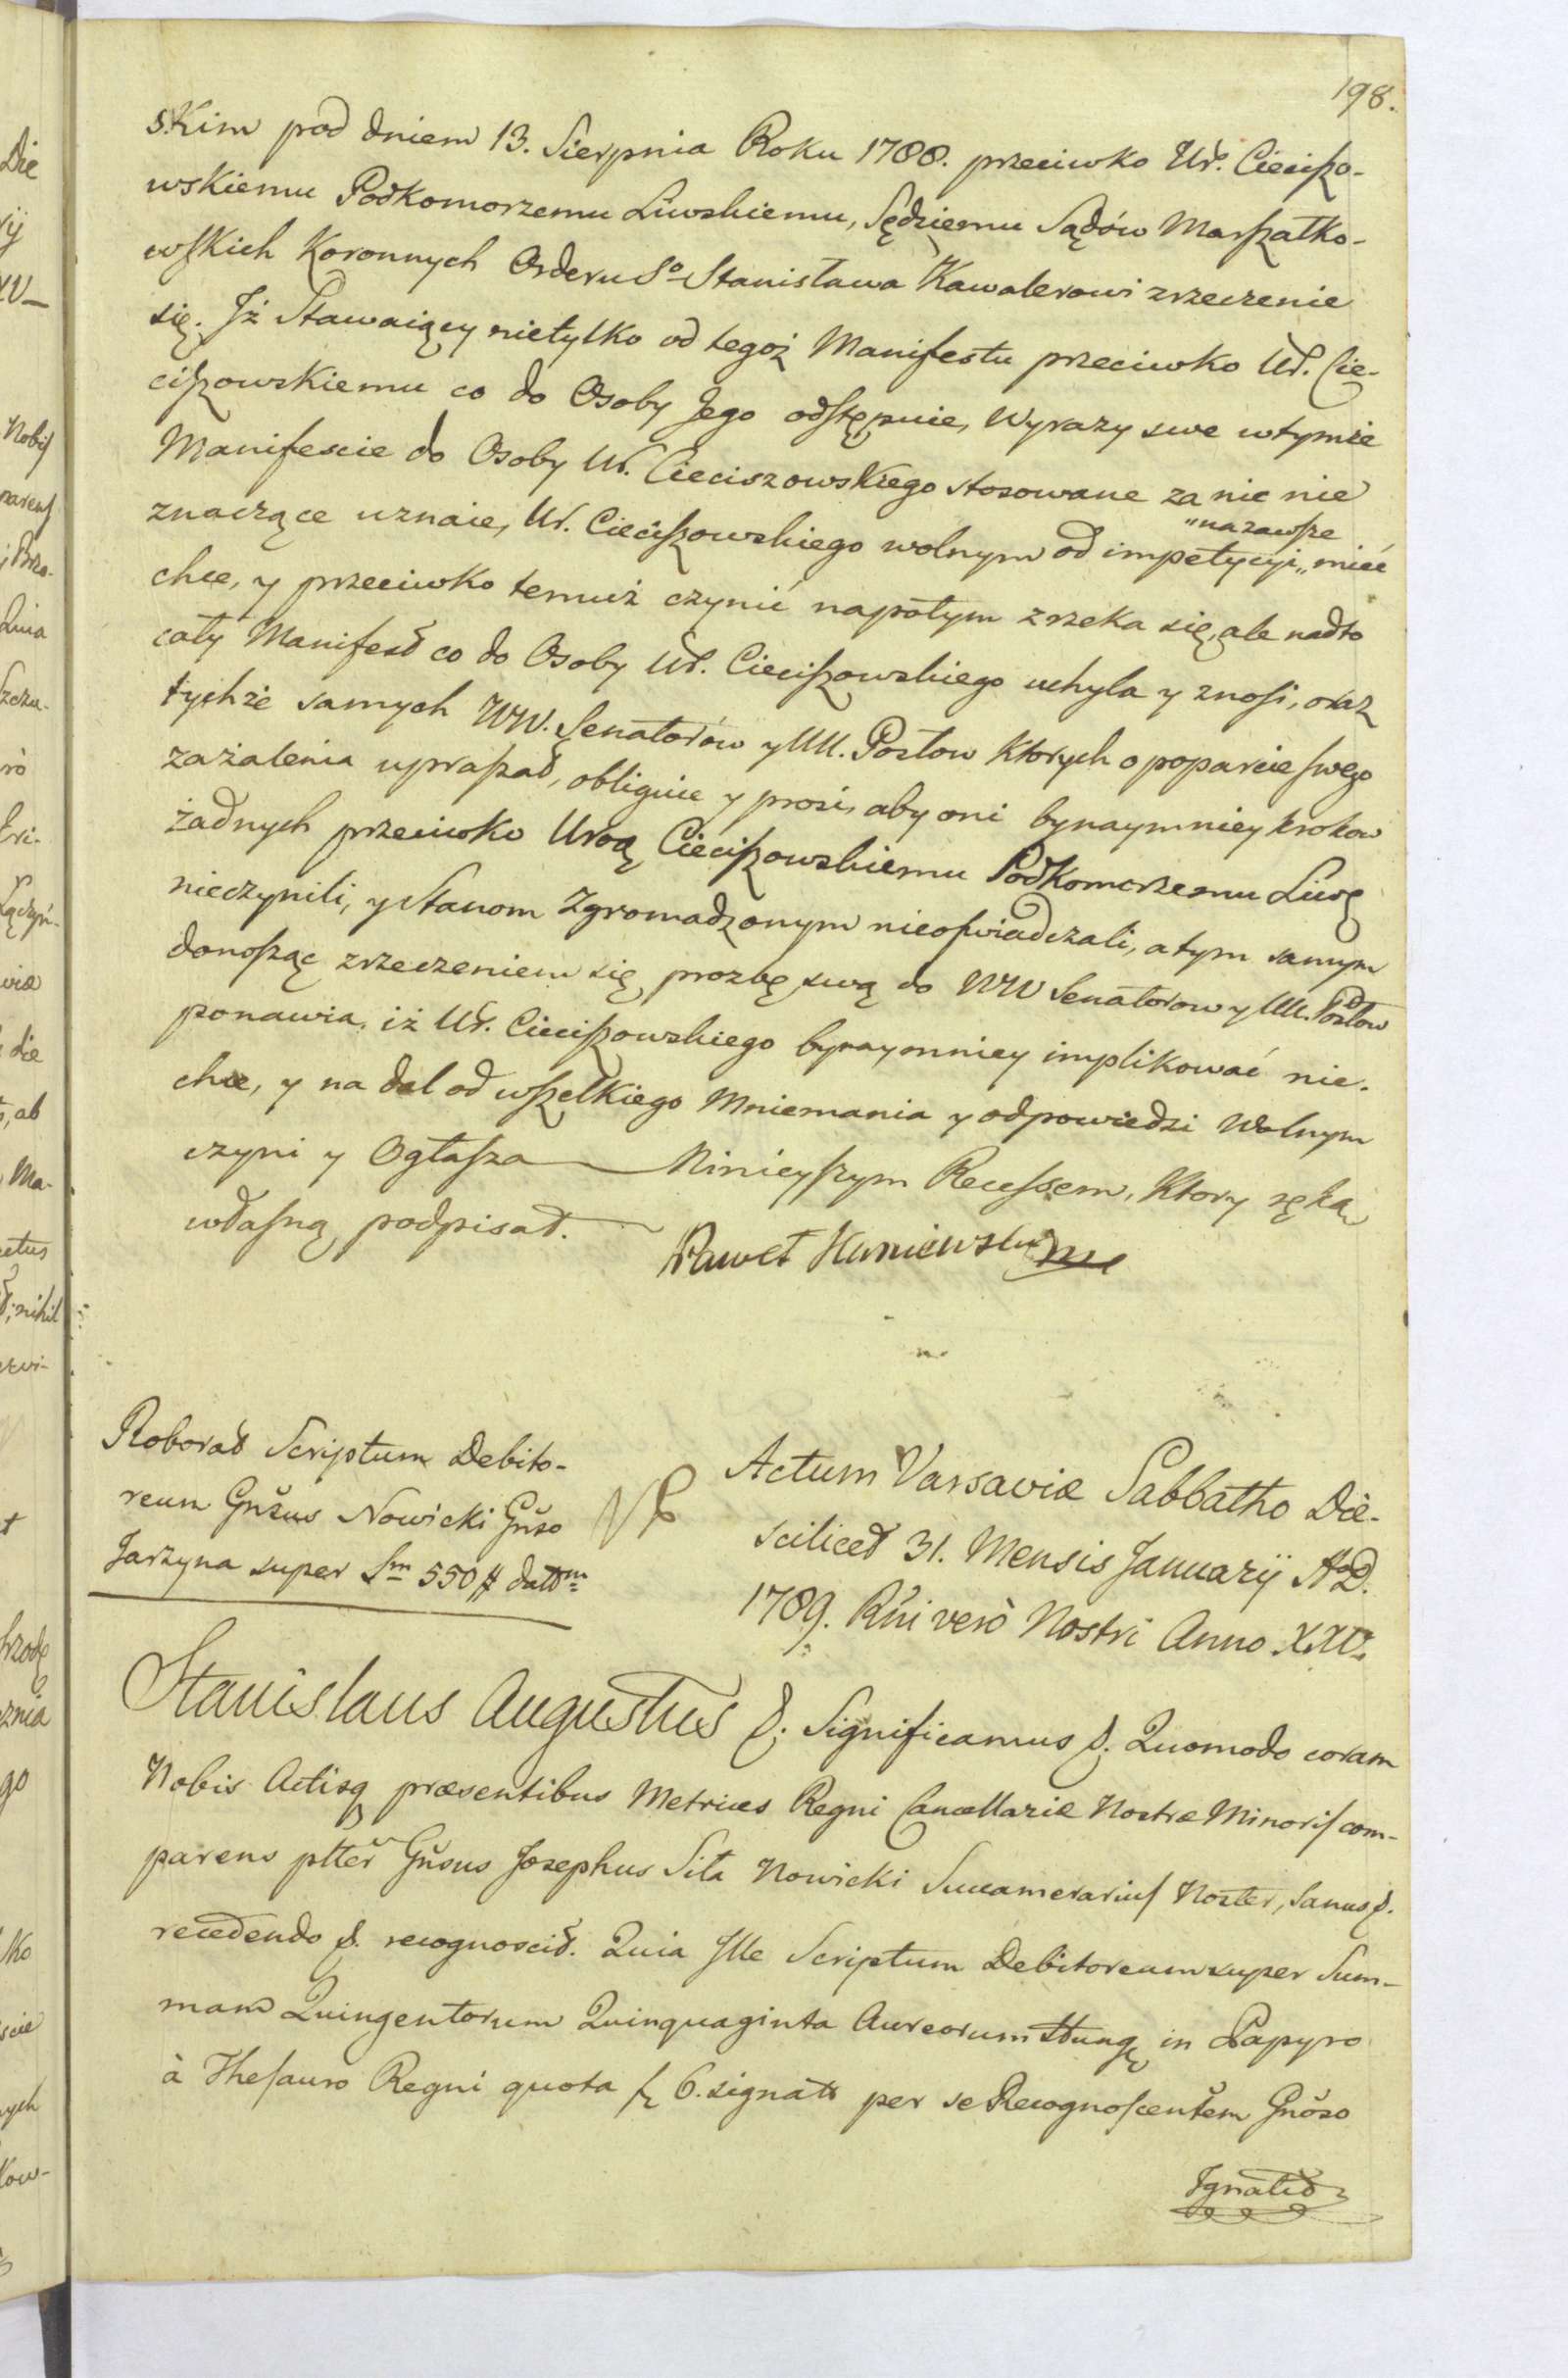 198.
skim pod dniem 13. Sierpnia Roku 1788. przeciwko Ur. Cieciszo-
wskiemu Podkomorzemu Liwskiemu, Sędziemu Sądów Marszałko-
wskich Koronnych Orderu Sº Stanisława Kawalerowi zrzeczenie
się. Iż Stawaiący nietylko od tegoż Manifestu przeciwko Ur. Cie-
ciszowskiemu co do Osoby Jego odstępuie, Wyrazy swe wtymże
Manifescie do Osoby Ur. Cieciszowskiego stosowane za nic nie
znaczące uznaie, Ur. Cieciszowskiego wolnym od impetycyi „ mieć
„ na zawsze
chce, y przeciwko temuż czynić napotym zrzeka się, ale nadto
cały Manifest co do Osoby Ur. Cieciszowskiego uchyla y znosi, oraz
tychże samych WW. Senatorów y UU. Posłow ktorych o poparcie swego
zażalenia upraszał, obliguie y prosi, aby oni bynaymniey krokow
żadnych przeciwko Uroą Cieciszowskiemu Podkomorzemu Liwę
nieczynili, y Stanom Zgromadzonym nieoświadczali, a tym samym
donosząc zrzeczeniem się, prozbę swą do WW Senatorow y UU. Posłow
ponawia, iż Ur. Cieciszowskiego bynaymniey implikować nie-
chce, y na dal od wszelkiego Mniemania y odpowiedzi Wolnym
czyni y Ogłasza Ninieyszym Recessem, ktory ręką
własną podpisał.
Paweł Kuniewski mp
Roborat Scriptum Debito-
reum Gnŝus Nowicki Gnŝo
Jarzyna super Sm 550 # datt m
NB
Actum Varsaviæ Sabbatho Die
scilicet 31. Mensis Januarÿ A.D.
1789. Rñi verò Nostri Anno XXV.
Stanislaus Augustus &. Significamus &. Quomodo coram
Nobis Actisq præsentibus Metrices Regni Cancellariæ Nostræ Minoris com-
parens pltter Gnŝus Josephus Siła Nowicki Succamerarius Noster, Sanus &.
recedendo &. recognoscit. Quia Ille Scriptum Debitoreum super Sum-
mam Quingentorum Quinquaginta Aureorum Hung in Papyro
à Thesauro Regni quota fl 6. signatt per se Recognoscentem Gnŝo
Ignatio